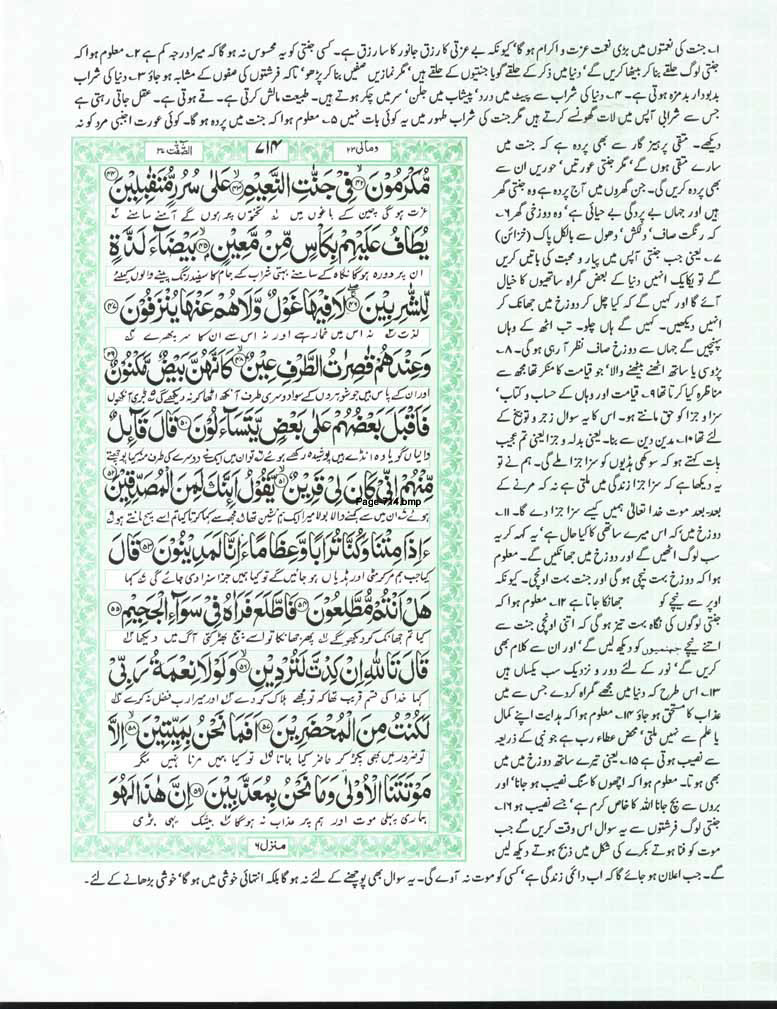 ۱۔ جنت کی نعمتوں میں بڑی نعمت عزت و اکرام ہو گا' کیونکہ بے عزتی کا رزق جانور کا سا رزق ہے۔ کسی جنتی کو یہ محسوس نہ ہو گا کہ میرا درجہ کم ہے ۲۔ معلوم ہوا کہ
جنتی لوگ حلقے بنا کر بیٹھا کریں گے' دنیا میں ذکر کے حلقے گویا جنتیوں کے حلقے ہیں' مگر نمازیں صفیں بنا کر پڑھو' تاکہ فرشتوں کی صفوں کے مشابہ ہو جاؤ ۳۔ دنیا کی شراب
بدبودار بدمزہ ہوتی ہے۔ ۴۔ دنیا کی شراب سے پیٹ میں درد' پیشاب میں جلن' سر میں چکر ہوتے ہیں۔ طبیعت مالش کرتی ہے۔ قے ہوتی ہے۔ عقل جاتی رہتی ہے
جس سے شرابی آپس میں لات گھونسے کرتے ہیں مگر جنت کی شراب طہور میں یہ کوئی بات نہیں ۵۔ معلوم ہوا کہ جنت میں پردہ ہو گا۔ کوئی عورت اجنبی مرد کو نہ
دیکھے۔ متقی پرہیز گار سے بھی پردہ ہے کہ جنت میں
سارے متقی ہوں گے' مگر جنتی عورتیں' حوریں ان سے
بھی پردہ کریں گی۔ جن گھروں میں آج پردہ ہے وہ جنتی گھر
ہیں اور جہاں بے پردگی بے حیائی ہے' وہ دوزخی گھر ۶۔
کہ رنگت صاف' دلکش' دھول سے بالکل پاک (خزائن)
۷۔ یعنی جب جنتی آپس میں پیار و محبت کی باتیں کریں
گے تو یکایک انہیں دنیا کے بعض گمراہ ساتھیوں کا خیال
آئے گا اور کہیں گے کہ کیا چل کر دوزخ میں جھانک کر
انہیں دیکھیں۔ کہیں گے ہاں چلو۔ تب اٹھ کے وہاں
پہنچیں گے جہاں سے دوزخ صاف نظر آ رہی ہو گی۔ ۸۔
پڑوسی یا ساتھ اٹھنے بیٹھنے والا' جو قیامت کا منکر تھا مجھ سے
مناظرہ کیا کرتا تھا ۹۔ قیامت اور وہاں کے حساب و کتاب'
سزا و جزا کو حق مانتے ہو۔ اس کا یہ سوال زجر و توبیخ کے
لئے تھا ۱۰۔ مدین دین سے بنا۔ یعنی بدلہ و جزا یعنی تم عجیب
بات کہتے ہو کہ سوکھی ہڈیوں کو سزا جزا ملے گی۔ ہم نے تو
یہ دیکھا ہے کہ سزا جزا زندگی میں ملتی ہے نہ کہ مرنے کے
بعد۔ بعد موت خدا تعالیٰ ہمیں کیسے سزا جزا دے گا۔ ۱۱۔
دوزخ میں' کہ اس میرے ساتھی کا کیا حال ہے' یہ کہہ کر یہ
سب لوگ اٹھیں گے اور دوزخ میں جھانکیں گے۔ معلوم
ہوا کہ دوزخ بہت نیچی ہو گی اور جنت بہت اونچی۔ کیونکہ
اوپر سے نیچے کو جھانکا جاتا ہے ۱۲۔ معلوم ہوا کہ
جنتی لوگوں کی نگاہ بہت تیز ہو گی کہ اتنی اونچی جنت سے
اتنے نیچے جہنمیوں کو دیکھ لیں گے' اور ان سے کلام بھی
کریں گے' نور کے لئے دور و نزدیک سب یکساں ہیں
۱۳۔ اس طرح کہ دنیا میں مجھے گمراہ کر دے جس سے میں
عذاب کا مستحق ہو جاؤ ۱۴۔ معلوم ہوا کہ ہدایت اپنے کمال
یا علم سے نہیں ملتی' محض عطاء رب ہے جو نبی کے ذریعہ
سے نصیب ہوتی ہے ۱۵۔ یعنی تیرے ساتھ دوزخ میں میں
بھی ہوتا۔ معلوم ہوا کہ اچھوں کا سنگ نصیب ہو جانا' اور
بروں سے بچ جانا اللہ کا خاص کرم ہے' جسے نصیب ہو ۱۶۔
جنتی لوگ فرشتوں سے یہ سوال اس وقت کریں گے جب
موت کو فنا ہوتے بکرے کی شکل میں ذبح ہوتے دیکھ لیں
گے۔ جب اعلان ہو جائے گا کہ اب دائمی زندگی ہے' کسی کو موت نہ آوے گی۔ یہ سوال بھی پوچھنے کے لئے نہ ہو گا بلکہ انتہائی خوشی میں ہو گا' خوشی بڑھانے کے لئے۔
ومالی ۲۳ ۷۱۴ الصّٰفّٰت ۳۷
مُّكْرَمُوْنَ ﴿۴۲﴾ فِيْ جَنّٰتِ النَّعِيْمِ ﴿۴۳﴾ عَلٰى سُرُرٍ مُّتَقٰبِلِيْنَ ﴿۴۴﴾
عزت ہو گی چین کے باغوں میں تختوں پر ہوں گے آمنے سامنے
يُطَافُ عَلَيْهِمْ بِكَاْسٍ مِّنْ مَّعِيْنٍۭ ﴿۴۵﴾ بَيْضَآءَ لَذَّةٍ
ان پر دورہ ہو گا نگاہ کے سامنے بہتی شراب کے جام کا سفید رنگ پینے والوں کیلئے
لِّلشّٰرِبِيْنَ ﴿۴۶﴾ لَا فِيْهَا غَوْلٌ وَّلَا هُمْ عَنْهَا يُنْزَفُوْنَ ﴿۴۷﴾
لذت نہ اس میں خمار ہے اور نہ اس سے ان کا سر پھرے
وَعِنْدَهُمْ قٰصِرٰتُ الطَّرْفِ عِيْنٌ ﴿۴۸﴾ كَاَنَّهُنَّ بَيْضٌ مَّكْنُوْنٌ ﴿۴۹﴾
اور ان کے پاس ہیں جو شوہروں کے سوا دوسری طرف آنکھ اٹھا کر نہ دیکھے گی بڑی آنکھوں
فَاَقْبَلَ بَعْضُهُمْ عَلٰى بَعْضٍ يَّتَسَآءَلُوْنَ ﴿۵۰﴾ قَالَ قَآئِلٌ
والیاں گویا وہ انڈے ہیں پوشیدہ رکھے ہوئے تو ان میں ایک نے دوسرے کی طرف منہ کیا پوچھتے
مِّنْهُمْ اِنِّيْ كَانَ لِيْ قَرِيْنٌ ﴿۵۱﴾ يَّقُوْلُ اَئِنَّكَ لَمِنَ الْمُصَدِّقِيْنَ ﴿۵۲﴾
Page-714.bmp
ہوئے ان میں سے کہنے والا بولا میرا ایک ہم نشین تھا مجھ سے کہا کرتا کیا تم اسے سچ مانتے ہو
ءَاِذَا مِتْنَا وَكُنَّا تُرَابًا وَّعِظَامًا ءَاِنَّا لَمَدِيْنُوْنَ ﴿۵۳﴾ قَالَ
کیا جب ہم مر کر مٹی اور ہڈیاں ہو جائیں گے تو کیا ہمیں جزا سزا دی جائے گی کہا
هَلْ اَنْتُمْ مُّطَّلِعُوْنَ ﴿۵۴﴾ فَاطَّلَعَ فَرَاٰهُ فِيْ سَوَآءِ الْجَحِيْمِ ﴿۵۵﴾
کیا تم جھانک کر دیکھو گے پھر جھانکا تو اسے بیچ بھڑکتی آگ میں دیکھا
قَالَ تَاللّٰهِ اِنْ كِدْتَّ لَتُرْدِيْنِ ﴿۵۶﴾ وَلَوْلَا نِعْمَةُ رَبِّيْ
کہا خدا کی قسم قریب تھا کہ تو مجھے ہلاک کر دے اور میرا رب فضل نہ کرے
لَكُنْتُ مِنَ الْمُحْضَرِيْنَ ﴿۵۷﴾ اَفَمَا نَحْنُ بِمَيِّتِيْنَ ﴿۵۸﴾ اِلَّا
تو ضرور میں بھی پکڑ کر حاضر کیا جاتا تو کیا ہمیں مرنا نہیں مگر
مَوْتَتَنَا الْاُوْلٰى وَمَا نَحْنُ بِمُعَذَّبِيْنَ ﴿۵۹﴾ اِنَّ هٰذَا لَهُوَ
ہماری پہلی موت اور ہم پر عذاب نہ ہو گا بیشک یہی بڑی
منزل ۶